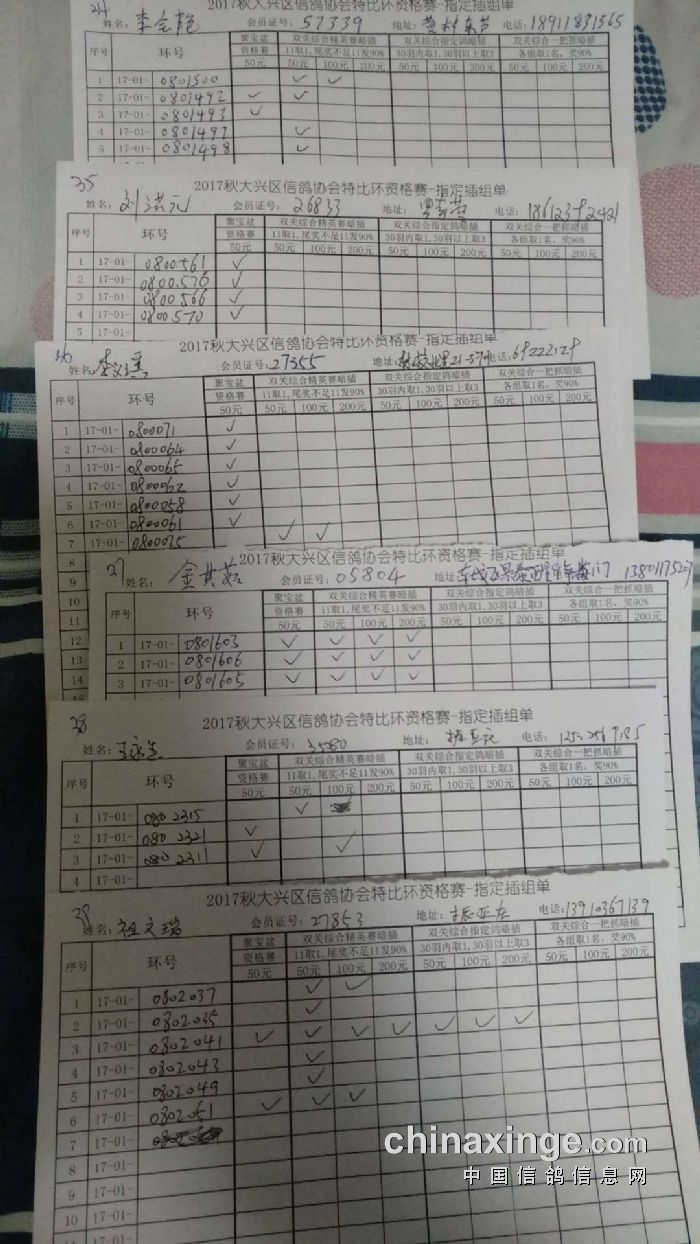 34 2017秋大兴区信鸽协会特比环资格赛-指定插组单
姓名: 会员证号: 57339 地址: 电话: 18911831565
序号 环号 聚宝盆 双关综合精英赛暗插 双关综合指定鸽暗插 双关综合一把抓暗插
资格赛 11取1,尾奖不足11发90% 30羽内取1,30羽以上取3 各组取1名,奖90%
50元 50元 100元 200元 50元 100元 200元 50元 100元 200元
1 17-01- 0801500 ✓ ✓
2 17-01- 0801492 ✓ ✓
3 17-01- 0801493 ✓ ✓
4 17-01- 0801497 ✓
5 17-01- 0801498 ✓
35 2017秋大兴区信鸽协会特比环资格赛-指定插组单
姓名: 刘洪元 会员证号: 26833 地址: 电话: 18612392421
序号 环号 聚宝盆 双关综合精英赛暗插 双关综合指定鸽暗插 双关综合一把抓暗插
资格赛 11取1,尾奖不足11发90% 30羽内取1,30羽以上取3 各组取1名,奖90%
50元 50元 100元 200元 50元 100元 200元 50元 100元 200元
1 17-01- 0800561 ✓
2 17-01- 0800576 ✓
3 17-01- 0800566 ✓
4 17-01- 0800570 ✓
5 17-01-
36 2017秋大兴区信鸽协会特比环资格赛-指定插组单
姓名: 会员证号: 27355 地址: 电话: 69222129
序号 环号 聚宝盆 双关综合精英赛暗插 双关综合指定鸽暗插 双关综合一把抓暗插
资格赛 11取1,尾奖不足11发90% 30羽内取1,30羽以上取3 各组取1名,奖90%
50元 50元 100元 200元 50元 100元 200元 50元 100元 200元
1 17-01- 0800071 ✓
2 17-01- 0800064 ✓
3 17-01- 0800065 ✓
4 17-01- 0800062 ✓
5 17-01- 0800058 ✓
6 17-01- 0800061 ✓
7 17-01- 0800075 ✓ ✓
8
9
10
11
12
13
14
37 2017秋大兴区信鸽协会特比环资格赛-指定插组单
姓名: 会员证号: 05804 地址: 13801175207
序号 环号 聚宝盆 双关综合精英赛暗插 双关综合指定鸽暗插 双关综合一把抓暗插
资格赛 11取1,尾奖不足11发90% 30羽内取1,30羽以上取3 各组取1名,奖90%
50元 50元 100元 200元 50元 100元 200元 50元 100元 200元
1 17-01- 0801603 ✓ ✓ ✓ ✓
2 17-01- 0801606 ✓ ✓ ✓ ✓
3 17-01- 0801605 ✓ ✓ ✓ ✓
38 2017秋大兴区信鸽协会特比环资格赛-指定插组单
姓名: 会员证号: 35080 地址: 电话:
序号 环号 聚宝盆 双关综合精英赛暗插 双关综合指定鸽暗插 双关综合一把抓暗插
资格赛 11取1,尾奖不足11发90% 30羽内取1,30羽以上取3 各组取1名,奖90%
50元 50元 100元 200元 50元 100元 200元 50元 100元 200元
1 17-01- 0802315 ✓
2 17-01- 0802321 ✓
3 17-01- 0802311 ✓ ✓
39 2017秋大兴区信鸽协会特比环资格赛-指定插组单
姓名: 祖文瑞 会员证号: 27853 地址: 电话: 13910367139
序号 环号 聚宝盆 双关综合精英赛暗插 双关综合指定鸽暗插 双关综合一把抓暗插
资格赛 11取1,尾奖不足11发90% 30羽内取1,30羽以上取3 各组取1名,奖90%
50元 50元 100元 200元 50元 100元 200元 50元 100元 200元
1 17-01- 0802037 ✓ ✓
2 17-01- 0802035 ✓
3 17-01- 0802041 ✓ ✓ ✓ ✓ ✓ ✓ ✓
4 17-01- 0802043 ✓
5 17-01- 0802049 ✓
6 17-01- 0802051 ✓ ✓ ✓
7 17-01-
17-01-
17-01-
10 17-01-
chinaxinge.com
中国信鸽信息网